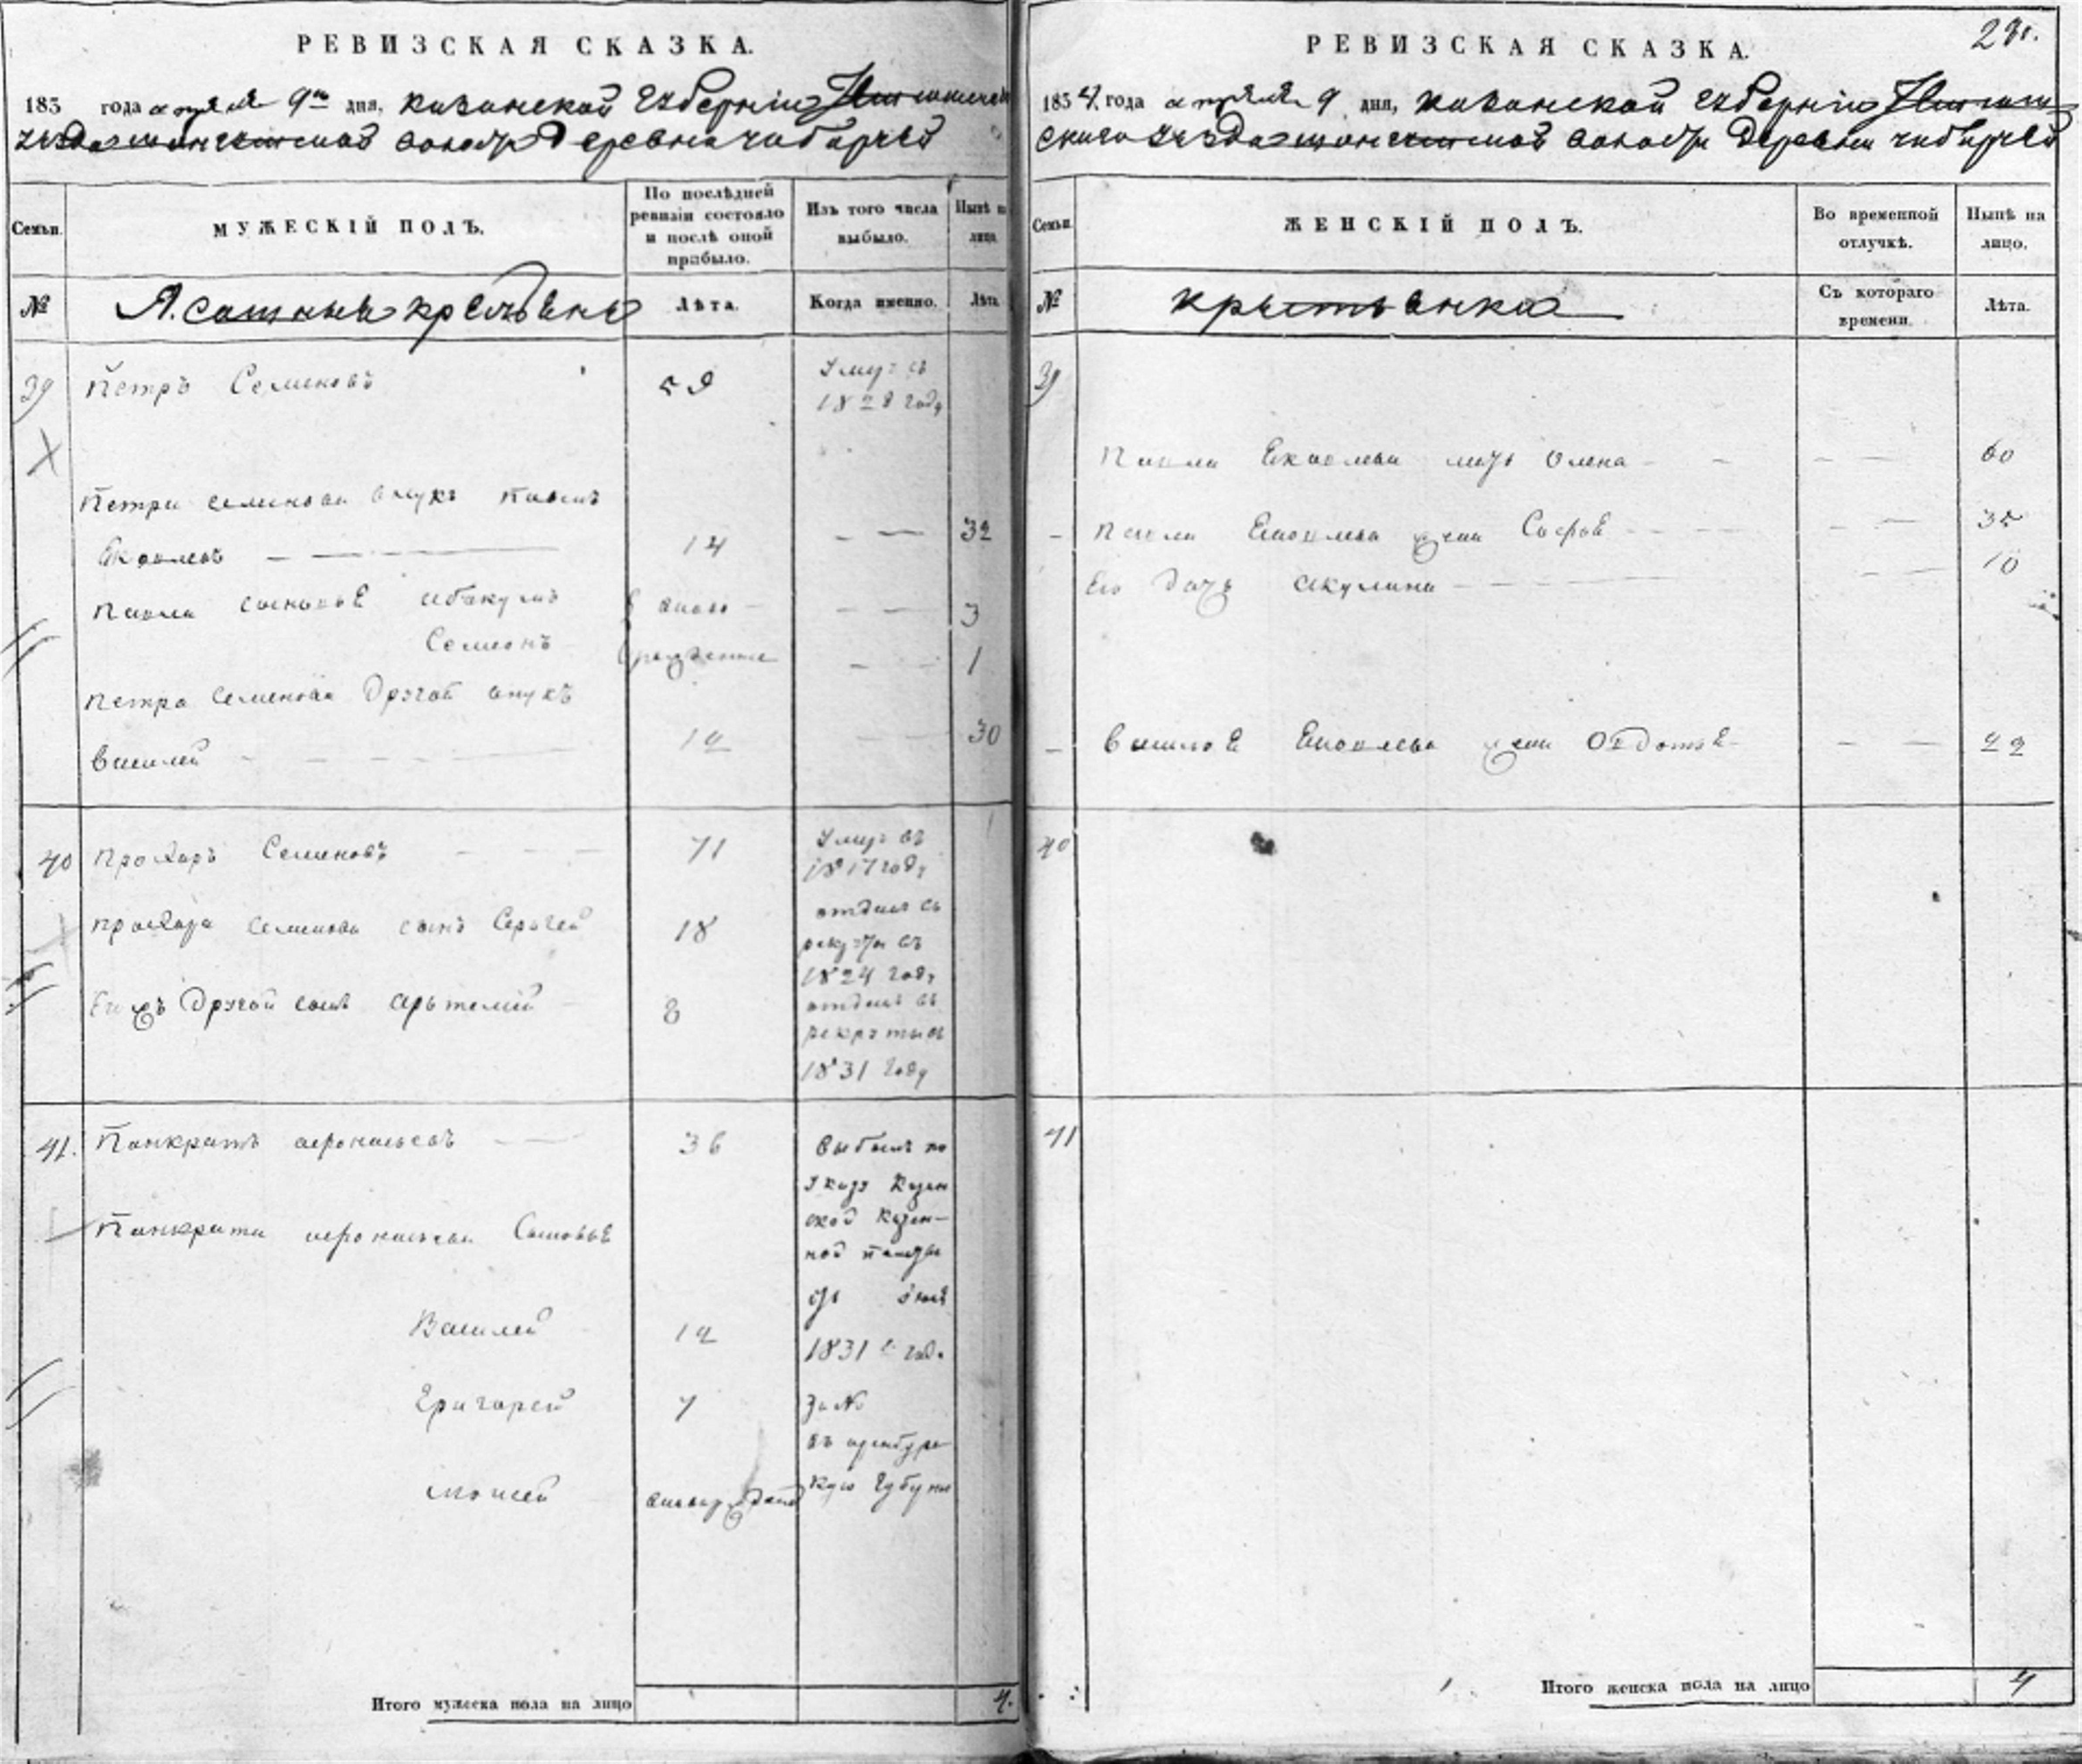 РЕВИЗСКАЯ СКАЗКА.
183 года апреля 9го дня, казанской губернии
уезда волости Деревни
Семьи. МУЖЕСКІЙ ПОЛЪ. По послѣдней ревизіи состояло и послѣ оной прибыло. Изъ того числа выбыло. Нынѣ на лицо
№ Ясашныя крестьяне Лѣта. Когда именно. Лѣта
39 Петръ Семеновъ 59 умре въ
1828 году
Петра семенова внукъ Павелъ
14 32
Павла сыновье Абакумъ вновь 3
Семионъ рожденные 1
Петра Семенова Другой внукъ
Василей 12 30
40 Прохаръ Семеновъ 71 умре въ
1817 году
Прохара Семенова сынъ Сергей 18 отданъ въ
рекруты въ
1824 году
Ево жъ Другой сынъ Артемей 8 отданъ въ
рекруты въ
1831 году
41. Панкратъ афонасьевъ 36 выбылъ по
указу Казан
ской Казен-
ной палаты
Панкрата афонасьева Сыновье
Василей 12
1831 год.
Григорей 7 За №
въ оренбург
Мосей вновь рожденой скую губерню
Итого мужеска пола на лицо 4.
28.
РЕВИЗСКАЯ СКАЗКА.
1834. года апреля 9 дня, казанской губернии
скаго уезда волости Деревни
Семьи. ЖЕНСКІЙ ПОЛЪ. Во временной отлучкѣ. Нынѣ на лицо.
№ крестьянки Съ котораго времени. Лѣта.
39
Павла мать Олена 60
Павла жена 35
Ево дочь Акулина 10
Василья жена Овдотья 22
40
41
Итого женска пола на лицо 4